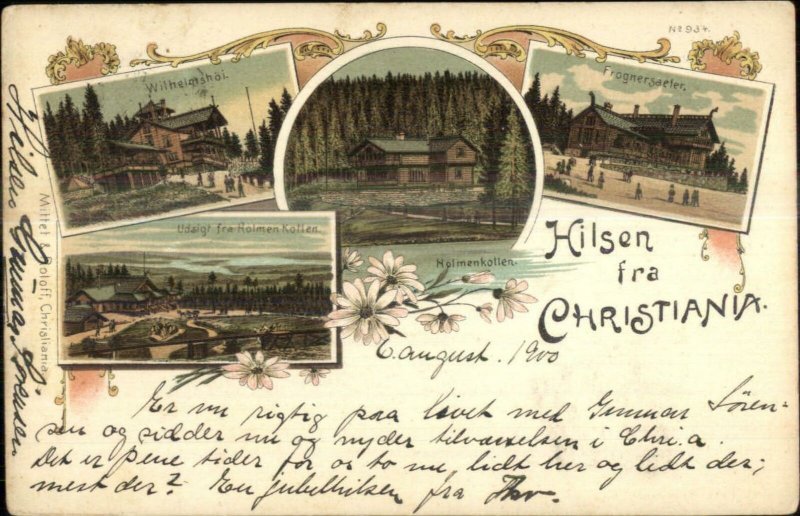 No 934.
Wilhelmshöi.
Frognersaeter.
Holmenkollen.
Udsigt fra Holmen Kollen.
Hilsen
fra
CHRISTIANIA.
Mittet & Holoff, Christiania.
6 august. 1900
Er nu rigtig paa livet med Gunnar Sören-
sen og sidder nu og nyder tilværelsen i Chri.a.
Det er pene tider for os to nu, lidt her og lidt der;
mest der? En jubelhilsen fra Thv.
Hilds Gunnar Sörensen